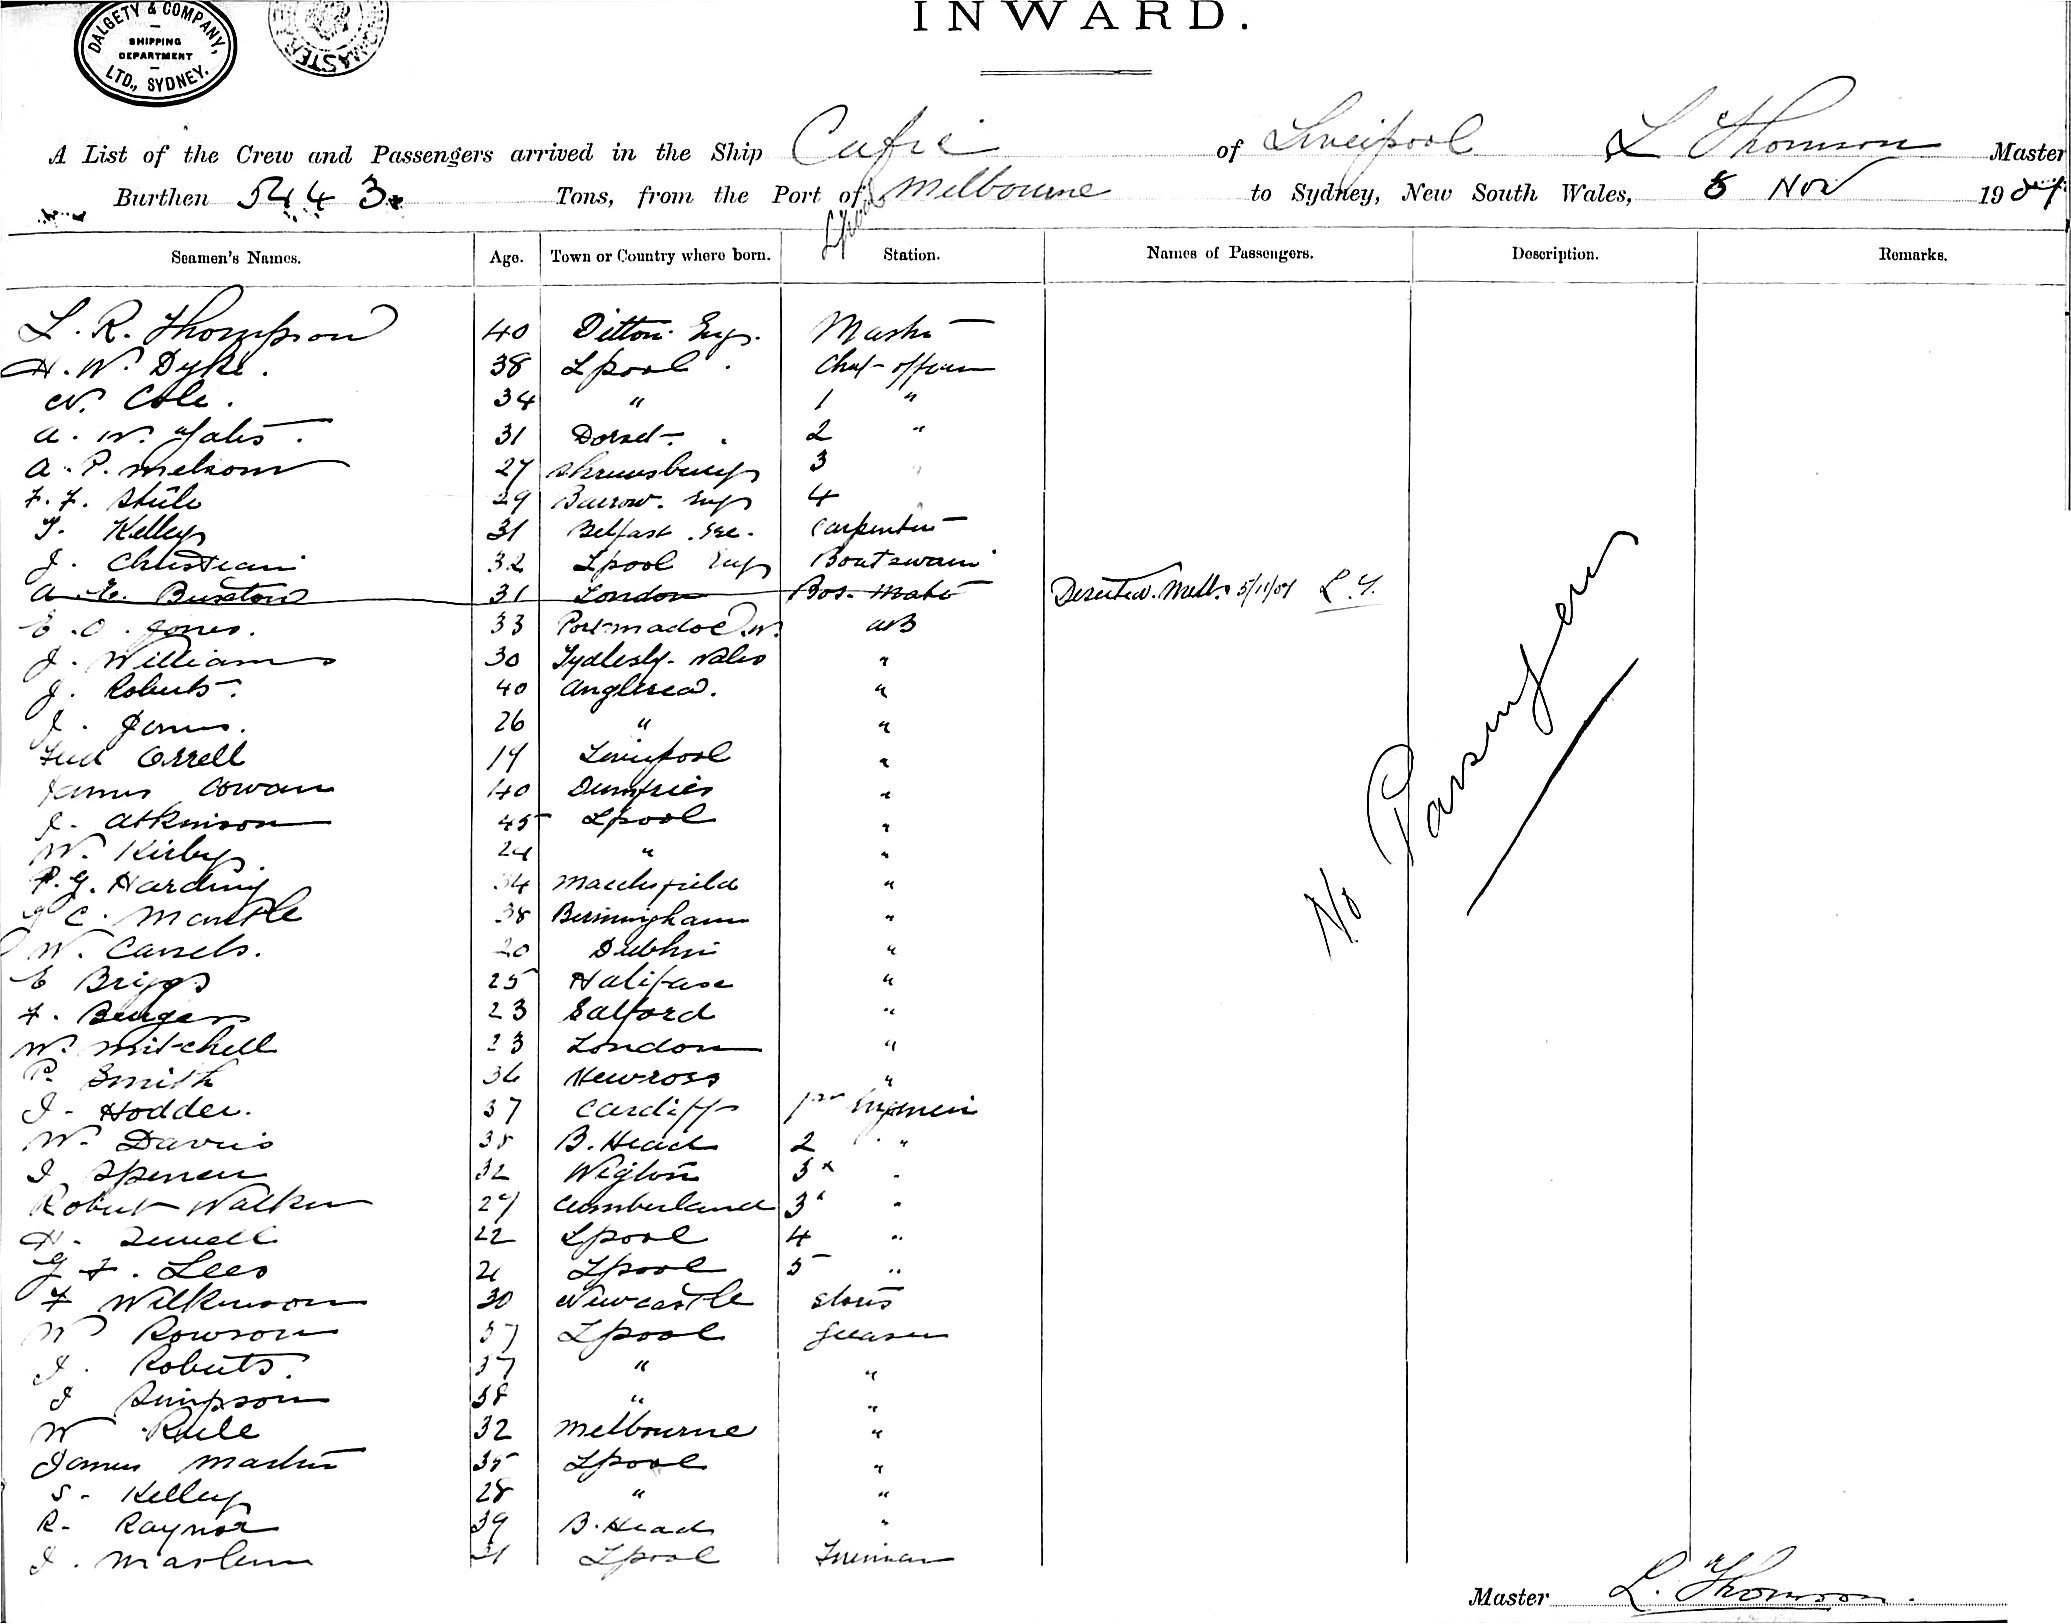 DALGETY & COMPANY, LTD., SYDNEY.
SHIPPING DEPARTMENT
INWARD.
A List of the Crew and Passengers arrived in the Ship Cufic of Liverpool L Thomson Master
Burthen 5443 Tons, from the Port of Lpool Melbourne to Sydney, New South Wales, 8 Nov 1907
Seamen's Names. Age. Town or Country where born. Station. Names of Passengers. Description. Remarks.
L. R. Thompson 40 Ditton Eng. Master
H. W. Dyke. 38 Lpool. Chief officer
W. Cole. 34 " 1 "
A. W. Yates. 31 Dorset. 2 "
A. P. Melsom 27 Shrewsbury 3 "
F. F. Steele 29 Barrow. Eng 4
T. Kelley 31 Belfast. Ire. Carpenter
J. Christian 32 Lpool Eng Boatswain
A. E. Buxton 31 London Bos. Mate Deserted. Melb. 5/11/07 L.T.
E. O. Jones. 33 Portmadoc. W. AB
J. Williams 30 Wales "
J. Roberts. 40 Anglesea. "
J. Jones. 26 " "
Fred Orrell 19 Liverpool "
James Cowan 40 Dumfries "
J. Atkinson 45 Lpool "
W. Kirby. 24 " "
P. G. Harding 34 Macclesfield "
C. Mantle 38 Birmingham "
W. Cassels. 20 Dublin "
E Briggs 25 Halifax "
F. 23 Salford "
W. Mitchell 23 London "
P. Smith 36 New ross "
J. Hodder. 37 Cardiff 1st Engineer
W. Davies 38 B. Head 2 "
J Spencer 32 Wigton 3 "
Robert Walker 27 Cumberland 3 "
H. 22 Lpool 4 "
G F. Lees 21 Lpool 5 "
F Wilkinson 30 Newcastle Stores
W Rowson 37 Lpool Greaser
J. Roberts. 37 " "
J Simpson 38 " "
W Rule 32 Melbourne "
James Martin 35 Lpool "
S. Kelley 28 " "
R. Raynor 39 B. Head "
J. 21 Lpool Fireman
No Passengers
Master L. Thomson.